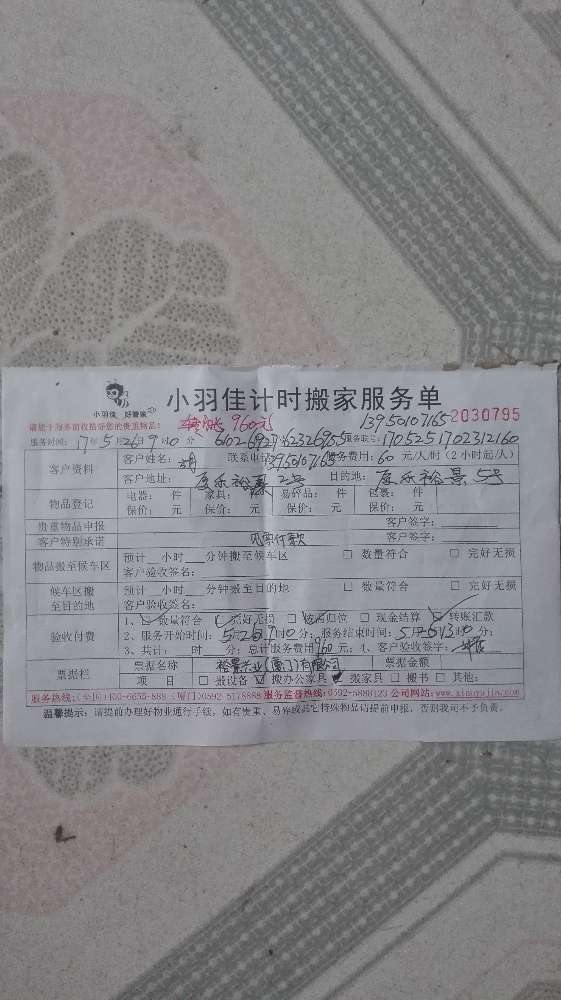 小羽佳 好管家
小羽佳计时搬家服务单
请您于服务前收拾好您的贵重物品: 转账 960元 13950107165 2030795
服务时间: 17年5月26日9时0分 服务联号: 1705251702312160
客户资料 客户姓名: 联系电话: 13950107165 服务费用: 60 元/人/时 (2小时起/人)
客户地址: 裕景2号 目的地: 裕景5号
物品登记 电器: 件 家具: 件 易碎品: 件 包裹: 件
保价: 元 保价: 元 保价: 元 保价: 元
贵重物品申报 客户签字:
客户特别承诺 付款 客户签字:
物品搬至候车区 预计 小时 分钟搬至候车区 □ 数量符合 □ 完好无损
客户验收签名:
候车区搬至目的地 预计 小时 分钟搬至目的地 □ 数量符合 □ 完好无损
客户验收签名:
验收付费 1、数量符合 完好无损 较高归位 □ 现金结算 转账汇款
2、服务开始时间: 5月26日9时0分; 服务结束时间: 5月26日13时0分;
3、共计: 时 分; 总计服务费用960元; 4、客户验收签字:
票据栏 票据名称 裕景兴业(厦门)有限公司 票据金额
项 目 □ 搬设备 搬办公家具 搬家具 □ 搬书 □ 其他:
服务热线:(全国)400-6655-888 (厦门)0592-5178888 服务监督热线:0592-5888123 公司网站:www.xiaoyujia.com
温馨提示: 请提前办理好物业通行手续, 如有贵重、易碎或其它特殊物品请提前申报, 否则我司不予负责。